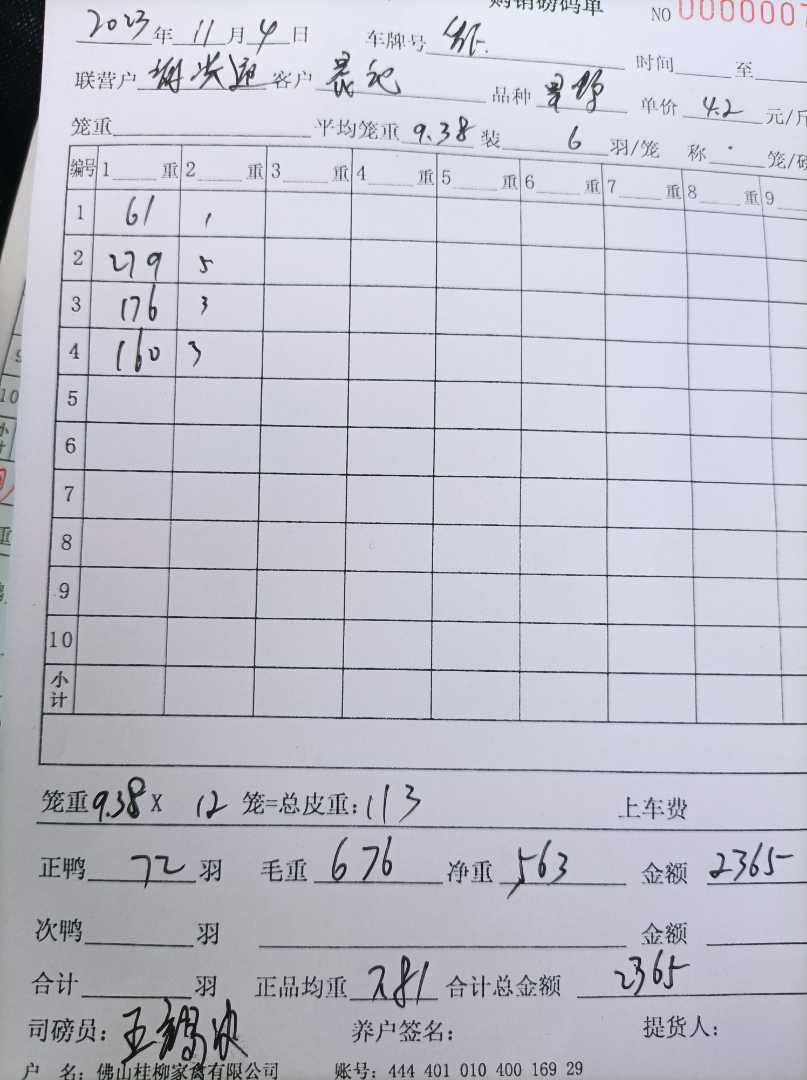 购销磅码单 NO 0000007
2023年 11月 4日 车牌号 时间 至
联营户 客户 晨记 品种 单价 4.2 元/斤
笼重 平均笼重 9.38 装 6 羽/笼 称 笼/磅
编号 1 重 2 重 3 重 4 重 5 重 6 重 7 重 8 重 9
1 61 1
2 279 5
3 176 3
4 160 3
5
6
7
8
9
10
小计
笼重9.38 X 12 笼=总皮重: 113 上车费
正鸭 72 羽 毛重 676 净重 563 金额 2365
次鸭 羽 金额
合计 羽 正品均重 7.81 合计总金额 2365
司磅员: 养户签名: 提货人:
户 名: 佛山桂柳家禽有限公司 账号: 444 401 010 400 169 29